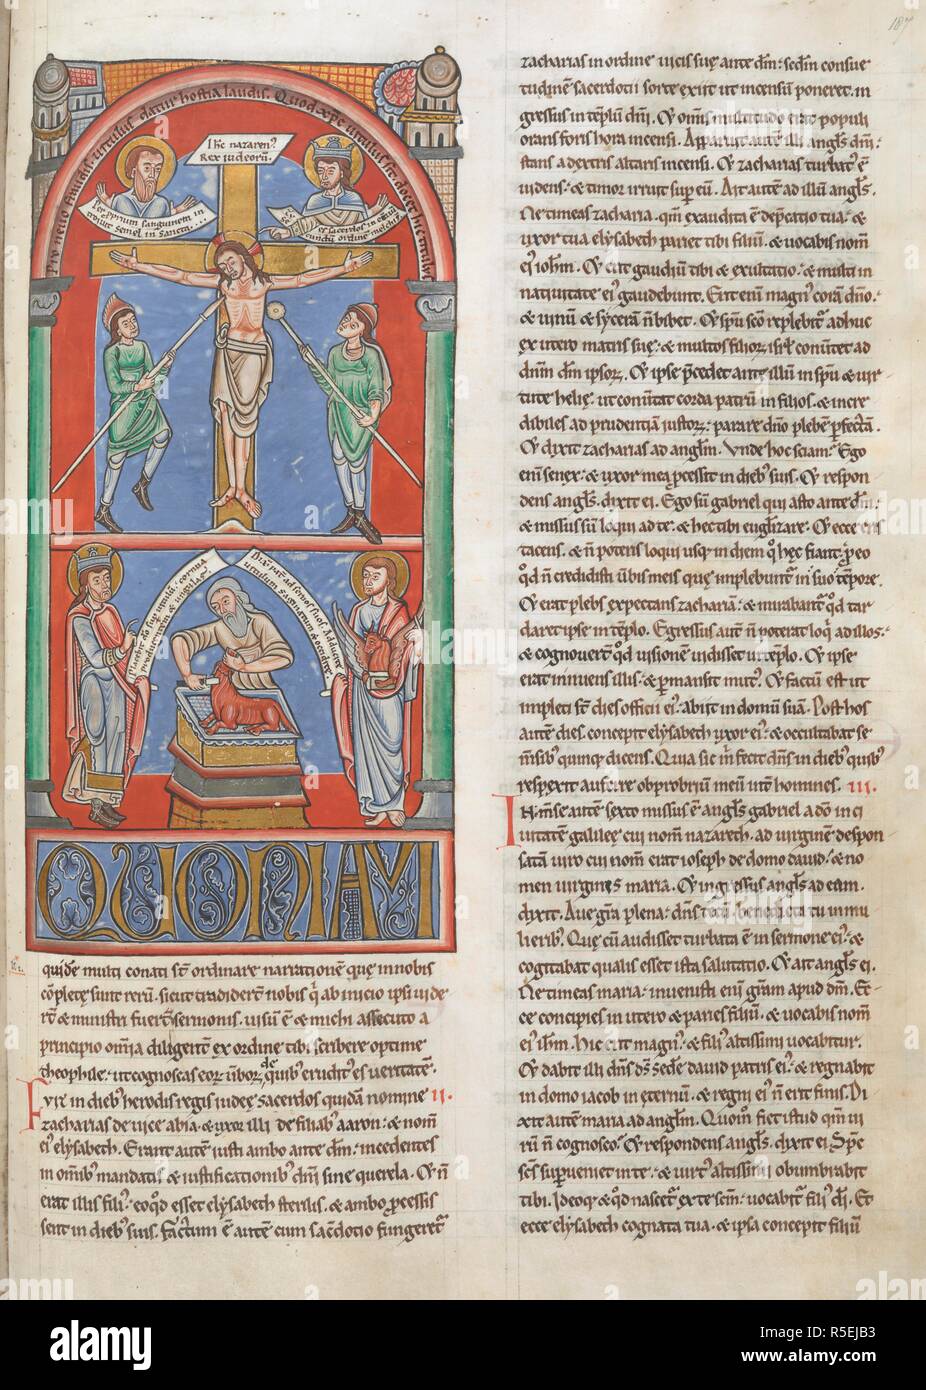 187
Pro nevo fraudis. vitulus datur hostia laudis. Quod xpc vitulus sit. docet hic titulus
Ihc nazaren'
Rex iudeorū.
Per pprium sanguinem in
troiuit semel in sancta.
es sacerdos in eternū
scdm ordinē melchis
Placebit dō sup vitulū cornua
producentē & ungulas
Dixit pat̄ ad servos suos. Adducite
vitulum saginatum & occidite
QUONIAM
quidē multi conati st̄ ordinare narrationē que in nobis
cōplete sunt rerū. sicut tradidert̄ nobis q̇ ab inicio ipsi vide
rt̄ & ministri fuert̄ sermonis. visum ē & michi assecuto a
principio om̄ia diligent̄ ex ordine tibi scribere optime
theophile. ut cognoscas eor̄ ūbor̄ de quib' erudit' es veritatē.
Fvit in dieb' herodis regis iudeę sacerdos quidā nomine II.
zacharias de vice abia. & uxor illi de filiab' aaron. & nom̄
ei' elysabeth. Erant autē iusti ambo ante dm̄. incedentes
in om̄ib' mandatis & iustificationib' dn̄i sine querela. Et n̄
erat illis fili'. eo qd̄ esset elysabeth sterilis. & ambo p̄cessis
sent in dieb' suis. Factum ē autē cum sac̄dotio fungeret̄
zacharias in ordine vicis suę ante dm̄. sedm̄ consue
tudinē sacerdotii sorte exiit ut incensū poneret. in
gressus in tēplū dn̄i. Et om̄is multitudo erat populi
orans foris hora incensi. Apparuit autē illi angl's dn̄i.
stans a dextris altaris incensi. Et zacharias turbat' ē
videns. & timor irruit sup eū. Ait autē ad illū angl's.
Ne timeas zacharia. qm̄ exaudita ē dep̄catio tua. &
uxor tua elysabeth pariet tibi filiū. & vocabis nom̄
ei' ioh̄m. Et erit gaudiū tibi & exultatio. & multi in
nativitate ei' gaudebunt. Erit enī magn' corā dn̄o.
& vinū & sycerā n̄ bibet. Et sp̄u sc̄o replebit̄ adhuc
ex utero matris suę. & multos filior̄ isrl' conv̄tet ad
dn̄m dm̄ ipsor̄. Et ipse p̄cedet ante illū in sp̄u & vir
tute helię. ut conv̄tat corda patrū in filios. & incre
dibiles ad prudentiā iustor̄. parare dn̄o plebē p̄fectā.
Et dixit zacharias ad angl'm. Unde hoc sciam. Ego
enī senex. & uxor mea p̄cessit in dieb' suis. Et respon
dens angl's. dixit ei. Ego sū gabriel qui asto ante dm̄.
& missus sū loqui ad te. & hec tibi euglizare. Et ecce eris
tacens. & n̄ potens loqui usq in diem q̊ hęc fiant. p̄ eo
qd̄ n̄ credidisti v̄bis meis quę implebunt̄ in suo tēpore.
Et erat plebs expectans zachariā. & mirabant̄ qd̄ tar
daret ipse in tēplo. Egressus autē n̄ poterat loqi ad illos.
& cognovert̄ qd̄ visionē vidisset in tēplo. Et ipse
erat innuens illis. & p̄mansit mut'. Et factū est ut
impleti st̄ dies officii ei'. abiit in domū suā. Post hos
autē dies. concepit elysabeth uxor ei'. & occultabat se
m̄sib' quinq dicens. Quia sic m̄ fecit dn̄s in dieb' quib'
respexit auferre obprobriū meū int̄ homines. III.
In m̄se autē sexto missus ē angl's gabriel a dō in ci
vitatē galileę cui nom̄ nazareth. ad virginē despon
satā viro cui nom̄ erat ioseph de domo david. & no
men virginis maria. Et ingressus angl's ad eam.
dixit. Ave gr̄a plena. dn̄s tecū. benedicta tu in mu
lierib'. Que cū audisset turbata ē in sermone ei'. &
cogitabat qualis esset ista salutatio. Et ait angl's ei.
Ne timeas maria. invenisti enī gr̄am apud dm̄. Ec
ce concipies in utero & paries filiū. & vocabis nom̄
ei' ihm̄. Hic erit magn'. & fili' altissimi vocabitur.
Et dabit illi dn̄s ds̄ sedē david patris ei'. & regnabit
in domo iacob in eternū. & regni ei' n̄ erit finis. Di
xit autē maria ad angl'm. Quom̊ fiet istud qm̄ vi
rū n̄ cognosco. Et respondens angl's. dixit ei. Sp̄c
sc̄s supveniet in te. & virt' altissimi obumbrabit
tibi. Ideoq & qd̄ nascet̄ ex te sc̄m. vocabit̄ fili' di. Et
ecce elysabeth cognata tua. & ipsa concepit filiū
alamy
Image ID: R5EJB3
www.alamy.com